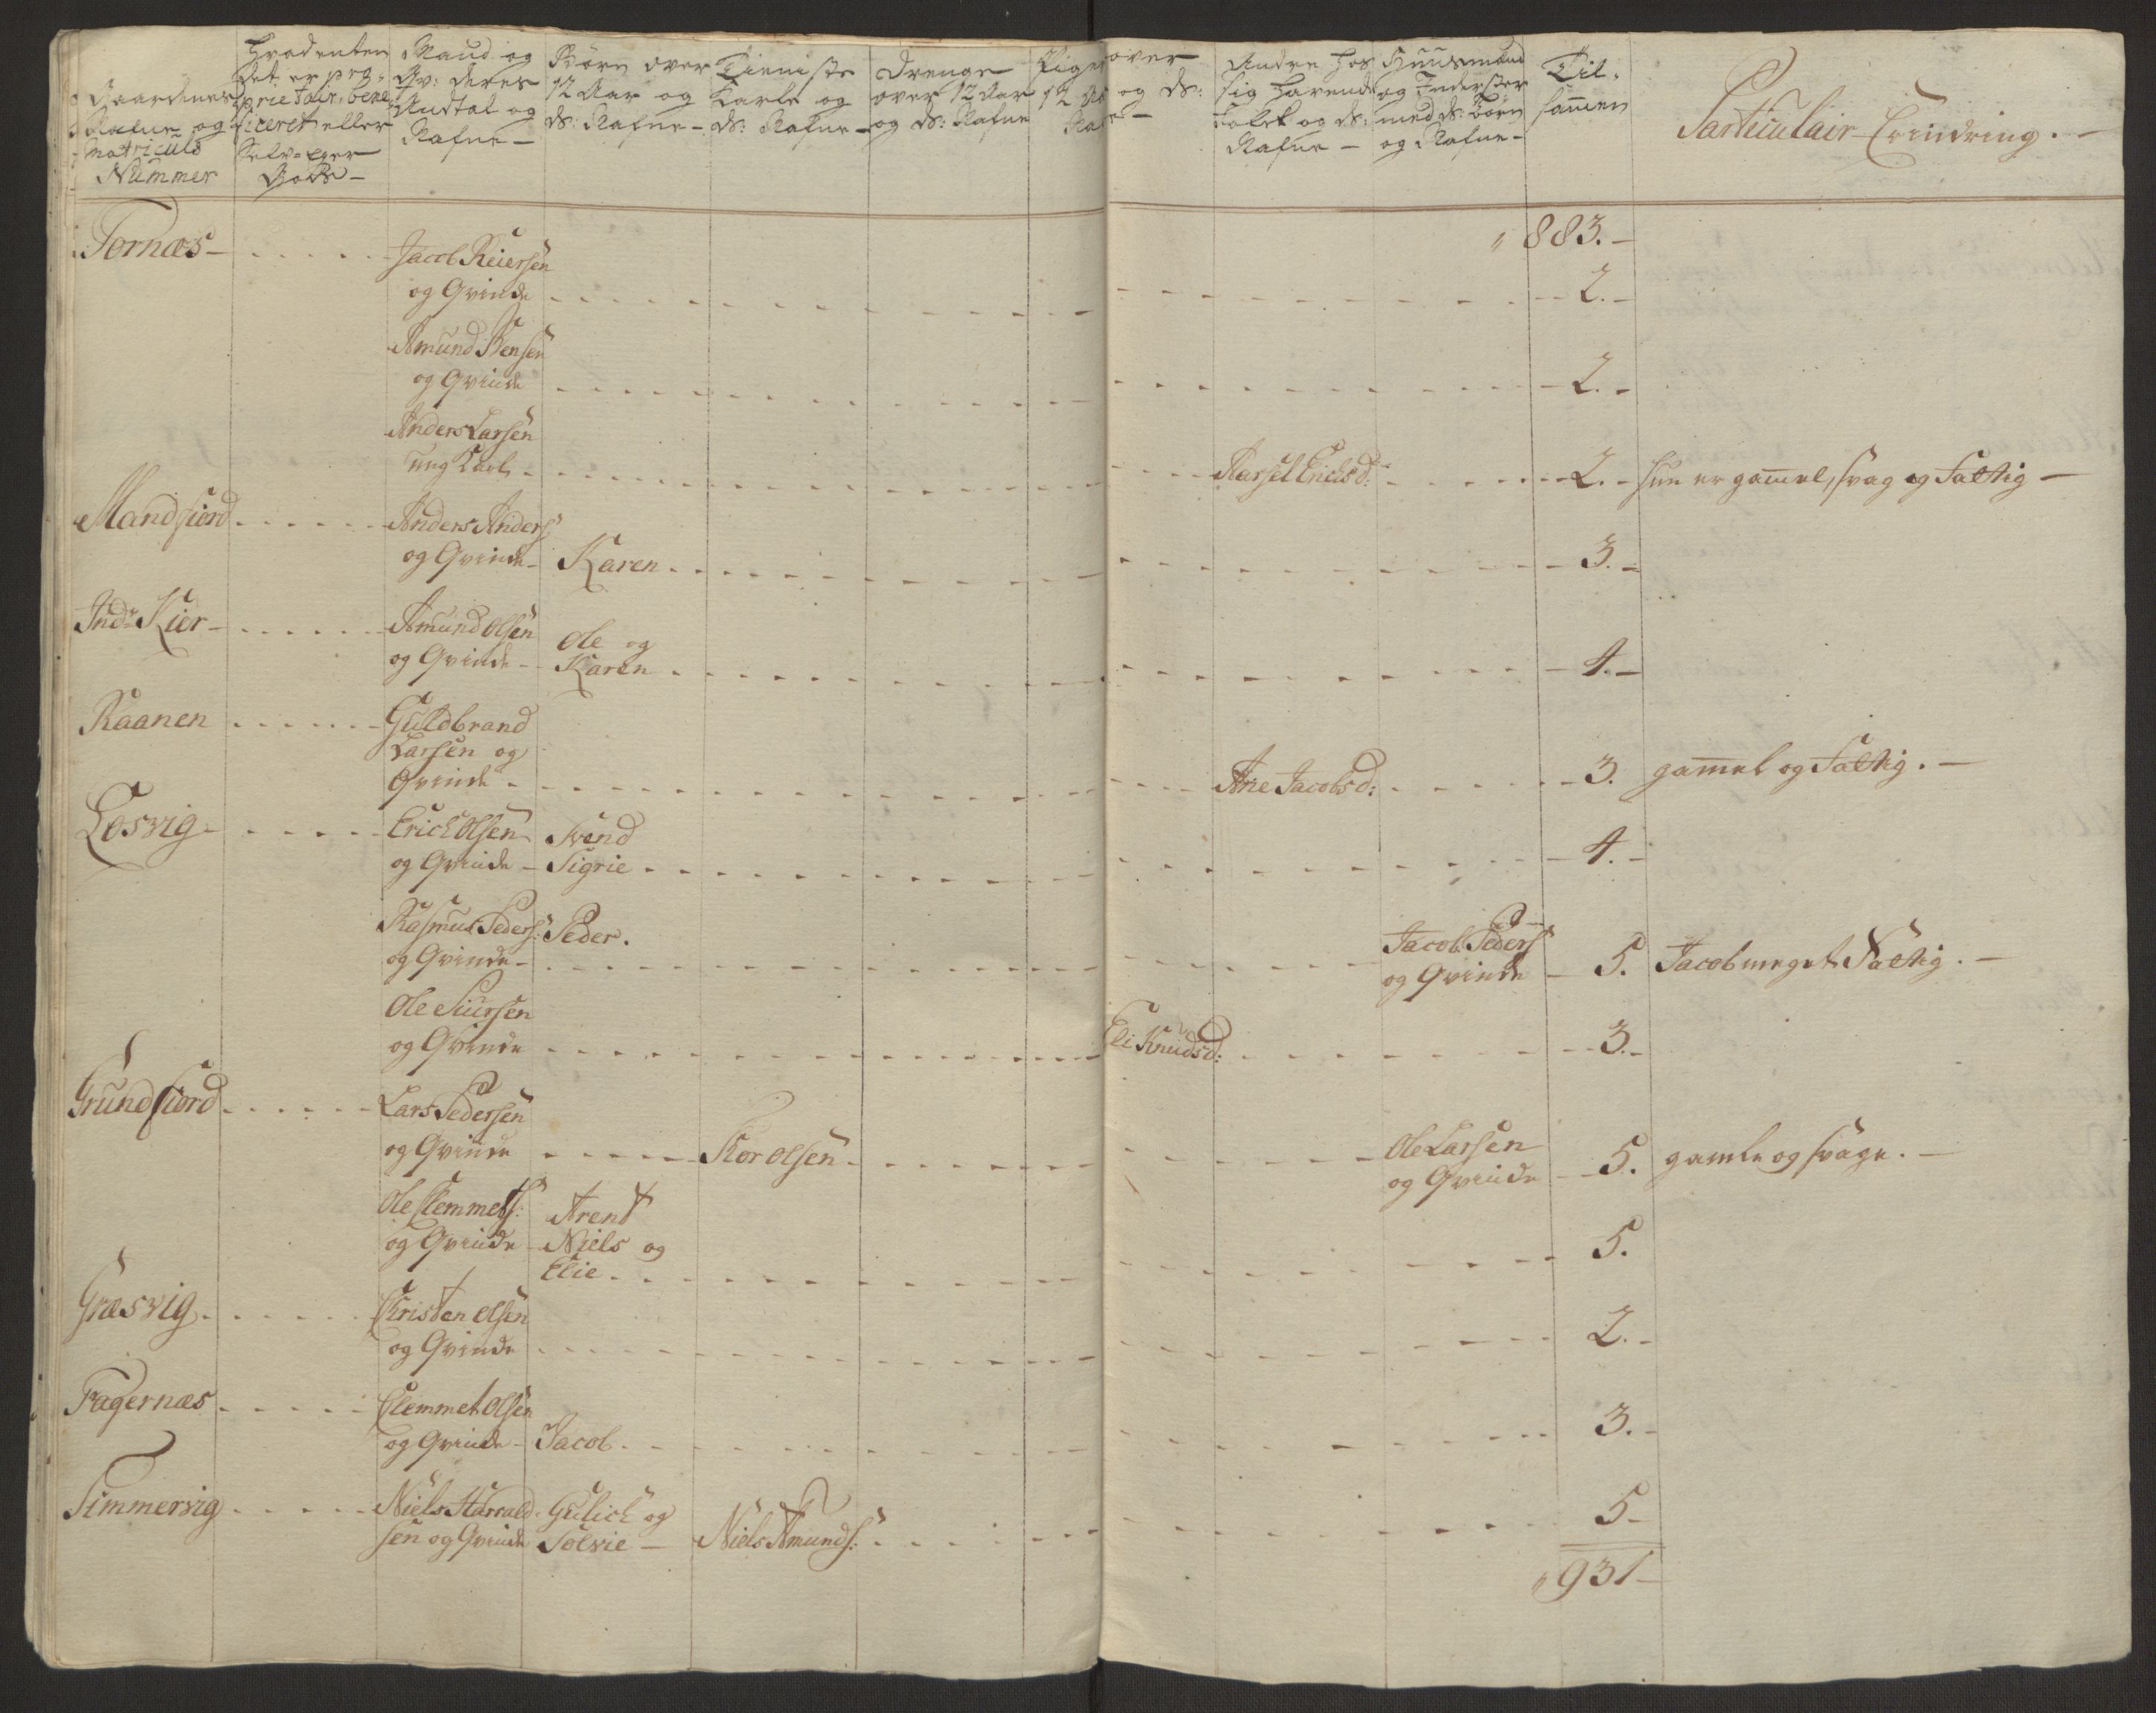 Gaardenes Nafne og matriculs Nummer
Hvadenten det er proprietair, beneficeret eller Selv-Eyer Gods -
Mand og Qv: deres Andtal og Nafne -
Børn over 12 Aar og ds: Nafne -
Tieniste Karle og ds: Nafne -
Drenge over 12 Aar og ds: Nafne
Piger over 12 Aar og ds: Nafne -
Andre hos sig havende Folck og ds: Nafne -
Huusmænd og Inderster med ds: Børn og Nafne -
Til- sammen
Particulair Erindring. -
883. -
Tornæs - Jacob Reiersen
og Qvinde 2. -
Amund Stensen
og Qvinde 2. -
Anders Larsen
ung Karl - Aarsel Erichsd: 2. - hun er gammel, svag og Fattig -
Mandfiord Anders Anders:
og Qvinde - Karen 3. -
Indr Kier - Amund Olsen
og Qvinde - Ole og
Karen 4. -
Raanen Guldbrand
Larsen og
Qvinde - Ane Jacobsd: 3. gammel og Fattig. -
Losvig - Erich Olsen Svend
og Qvinde - Sigrie 4. -
Rasmus Peders: Peder.
og Qvinde - Jacob Peders:
og Qvinde 5. Jacob meget Fattig. -
Ole Siursen
og Qvinde Eli Knudsd: 3. -
Grundfiord Lars Pedersen
og Qvinde Tor Olsen Ole Larsen
og Qvinde 5. gamle og svage. -
Ole Clemmets: Arent
og Qvinde Niels og
Elie 5.
Græsvig Christen Olsen
og Qvinde 2. -
Fagernæs Clemmet Olsen
og Qvinde - Jacob 3. -
Simmervig Niels Harrald- Gulich og
sen og Qvinde Solvie - Niels Amunds: 5 -
931 -